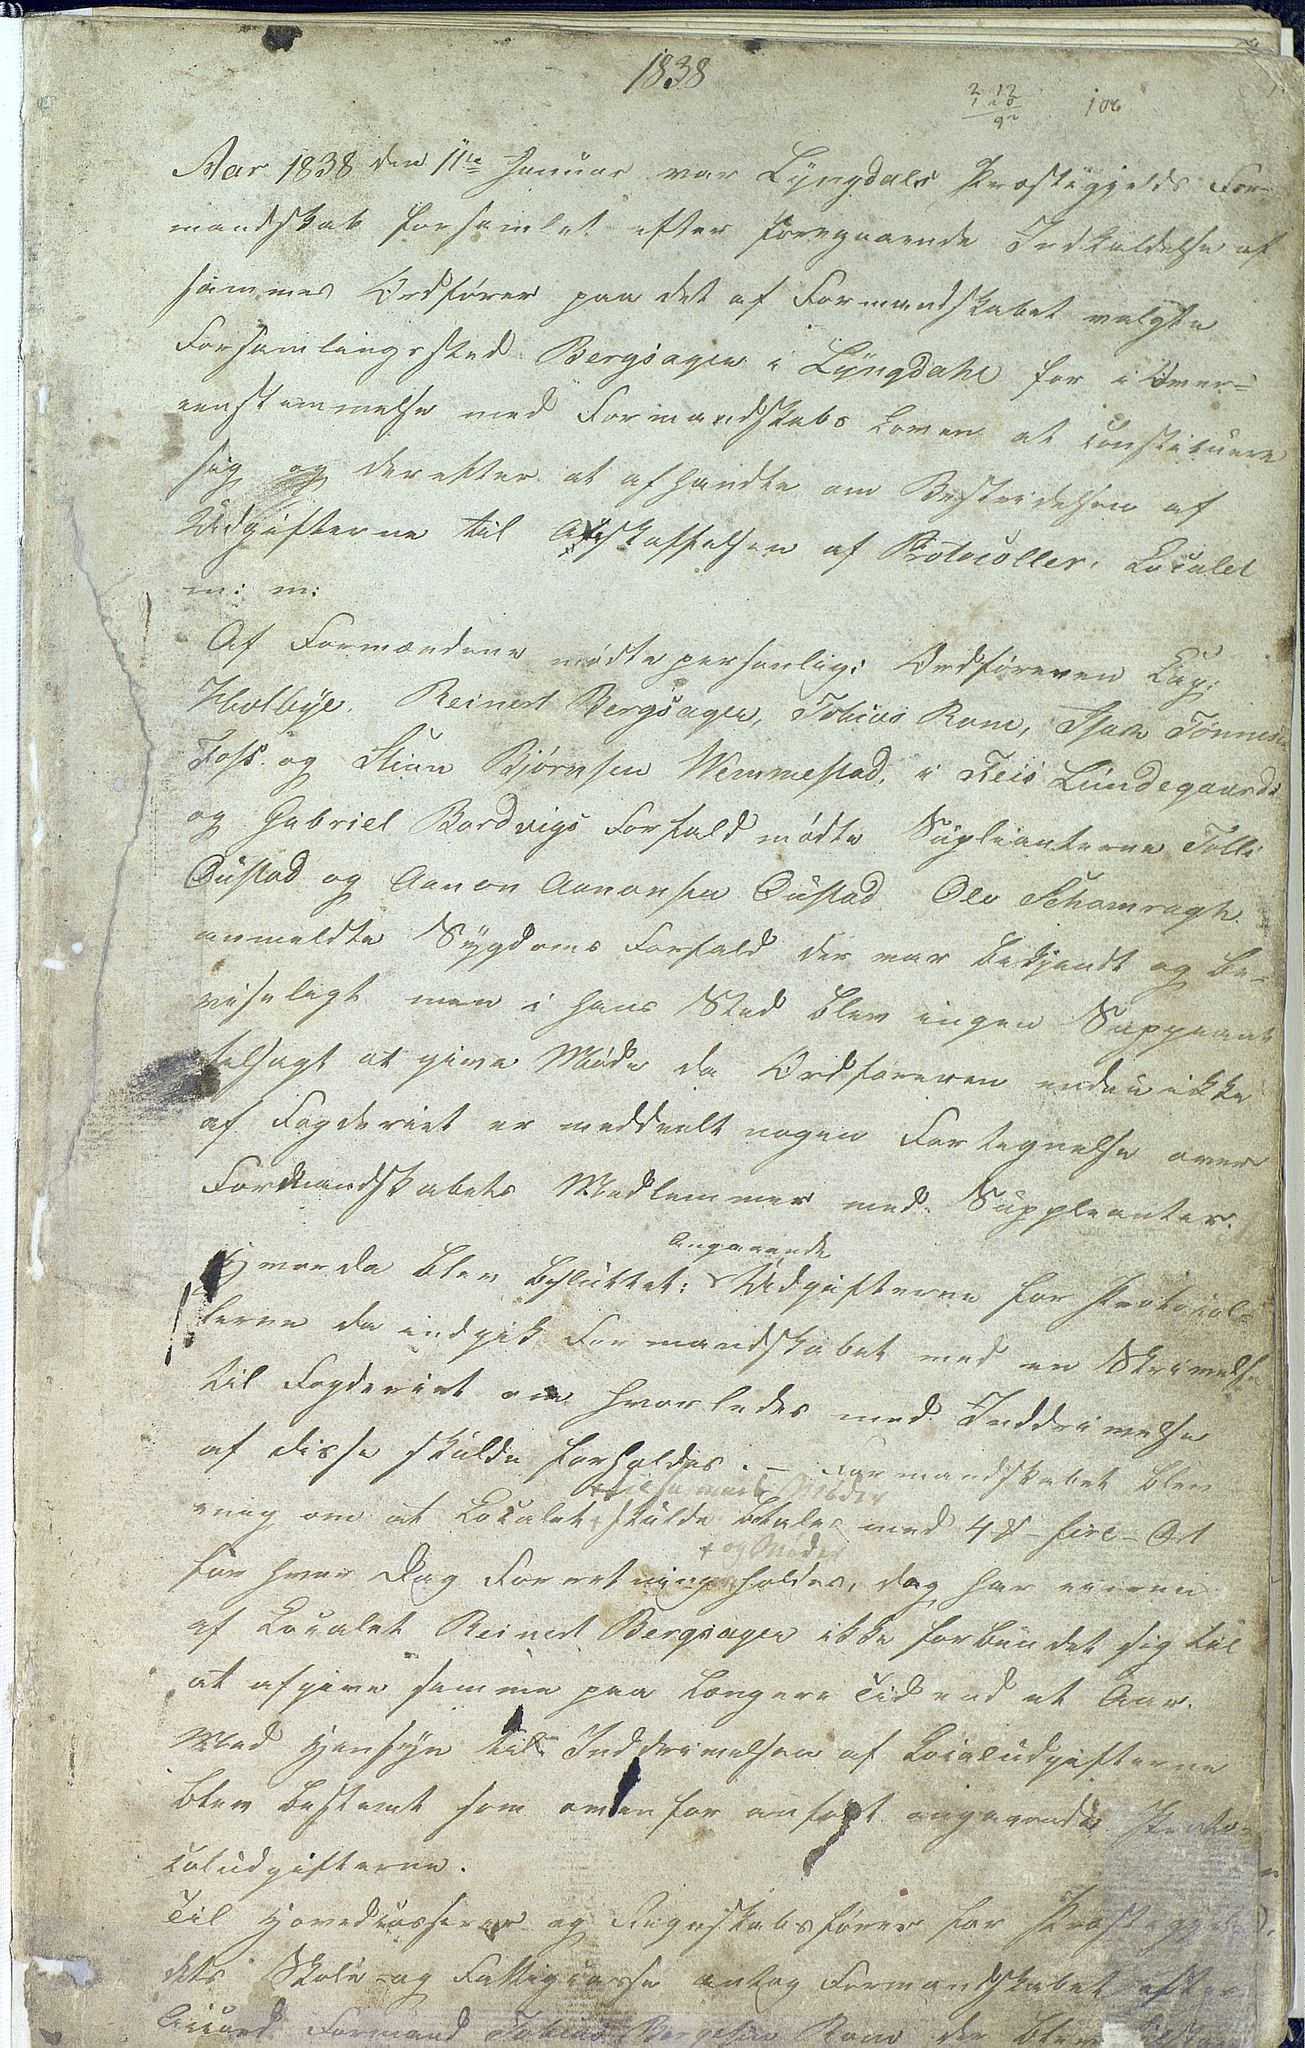 1838
2 12
1 20
92
106
Aar 1838 den 11te Januar var Lyngdals Præstegjelds For-
mandskab forsamlet efter foregaaende Indkaldelse af
sammes Ordfører paa det af Formandskabet valgte
Forsamlingssted Bergsagen i Lyngdahl for i Over-
eenstemmelse med Formandskabs Loven at constituere
sig og derefter at afhandle om Bestridelsen af
Udgifterne til Anskaffelsen af Protocoller, Localet
m: m:
Af Formændene mødte personlig: Ordføreren Cap:
Holbye, Reinert Bergsagen, Tobias Rom, Isak Tønnesen
Foss og Stian Bjørnsen Wemmestad, i Teis Lundegaards
og Gabriel Bordvigs Forfald mødte Suplianterne Tolli
Øustad og Aanon Aanonsen Øustad Ole Schomragh
anmeldte Sygdoms Forfald der var bekjendt og be-
viseligt men i hans Sted blev ingen Suppleant
tilsagt at give Møde da Ordføreren endnu ikke
af Fogderiet er meddeelt nogen Fortegnelse over
Formandskabets Medlemmer med Suppleanter.
Angaaende
Hvorda blev besluttet: Udgifterne for Protocol-
lerne da indgik Formandskabet med en Skrivelse
til Fogderiet om hvorledes med Inddrivelse
af disse skulde forholdes. – Formandskabet blev
til sammes Møder
enig om at Localet skulde betales med 4 – fire – Ort
og Møder
for hver Dag Forretning holdes, dog har eieren
af Localet Reinert Bergsagen ikke forbundet sig til
at afgive samme paa længere Tid end et Aar.
Med Hensyn til Inddrivelsen af Localudgifterne
blev bestemt som ovenfor anført angaaende Proto-
coludgifterne.
Til Hovedcasserer og Regnskabsfører for Præstegjel-
dets Skole- og Fattigcasse antog Formandskabet efter
Accord Formand Tobias Rom der blev